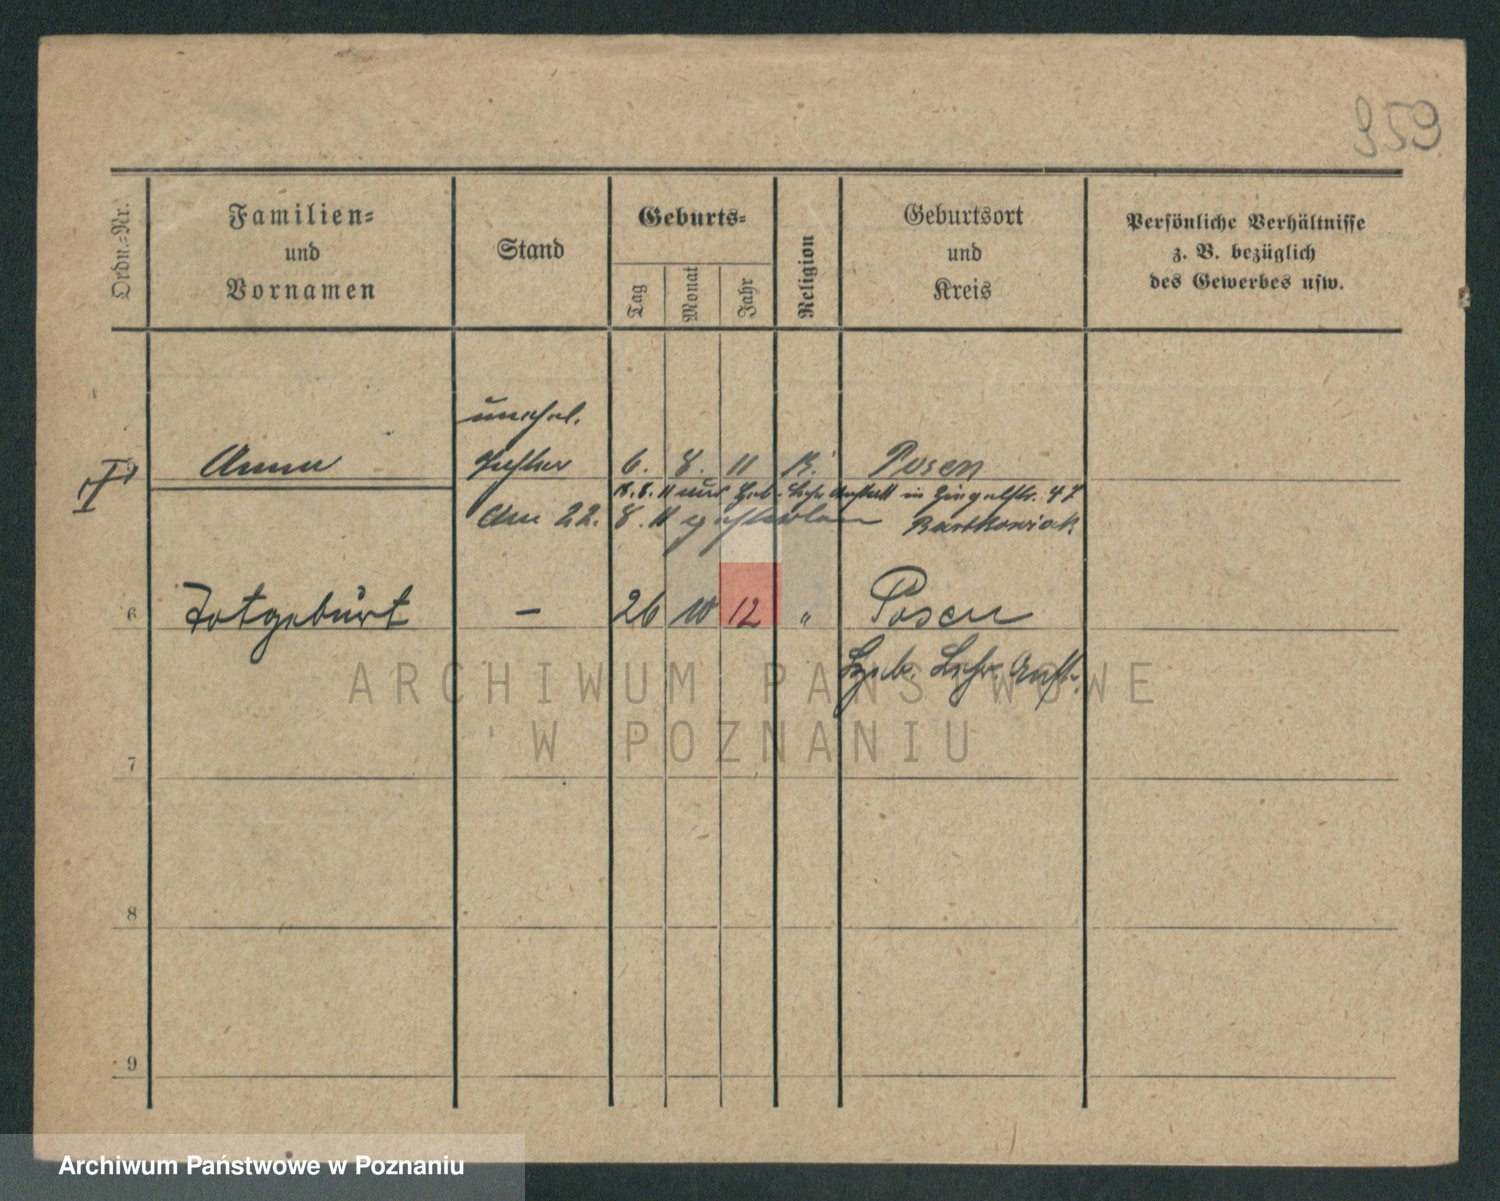 959
Ordn.-Nr.
Familien-
und
Vornamen
Stand
Geburts-
Tag
Monat
Jahr
Religion
Geburtsort
und
Kreis
Persönliche Verhältnisse
z. B. bezüglich
des Gewerbes usw.
unehel.
Anna Tochter 6. 8. 11 K. Posen
18. 8. 11 aus Heb. Lehr Anstalt in 47
Am 22. 8. 11 gestorben Bartkowiak
6 Totgeburt — 26 10 12 " Posen
Heb. Lehr. Anst.
7
8
9
ARCHIWUM PAŃSTWOWE
W POZNANIU
Archiwum Państwowe w Poznaniu